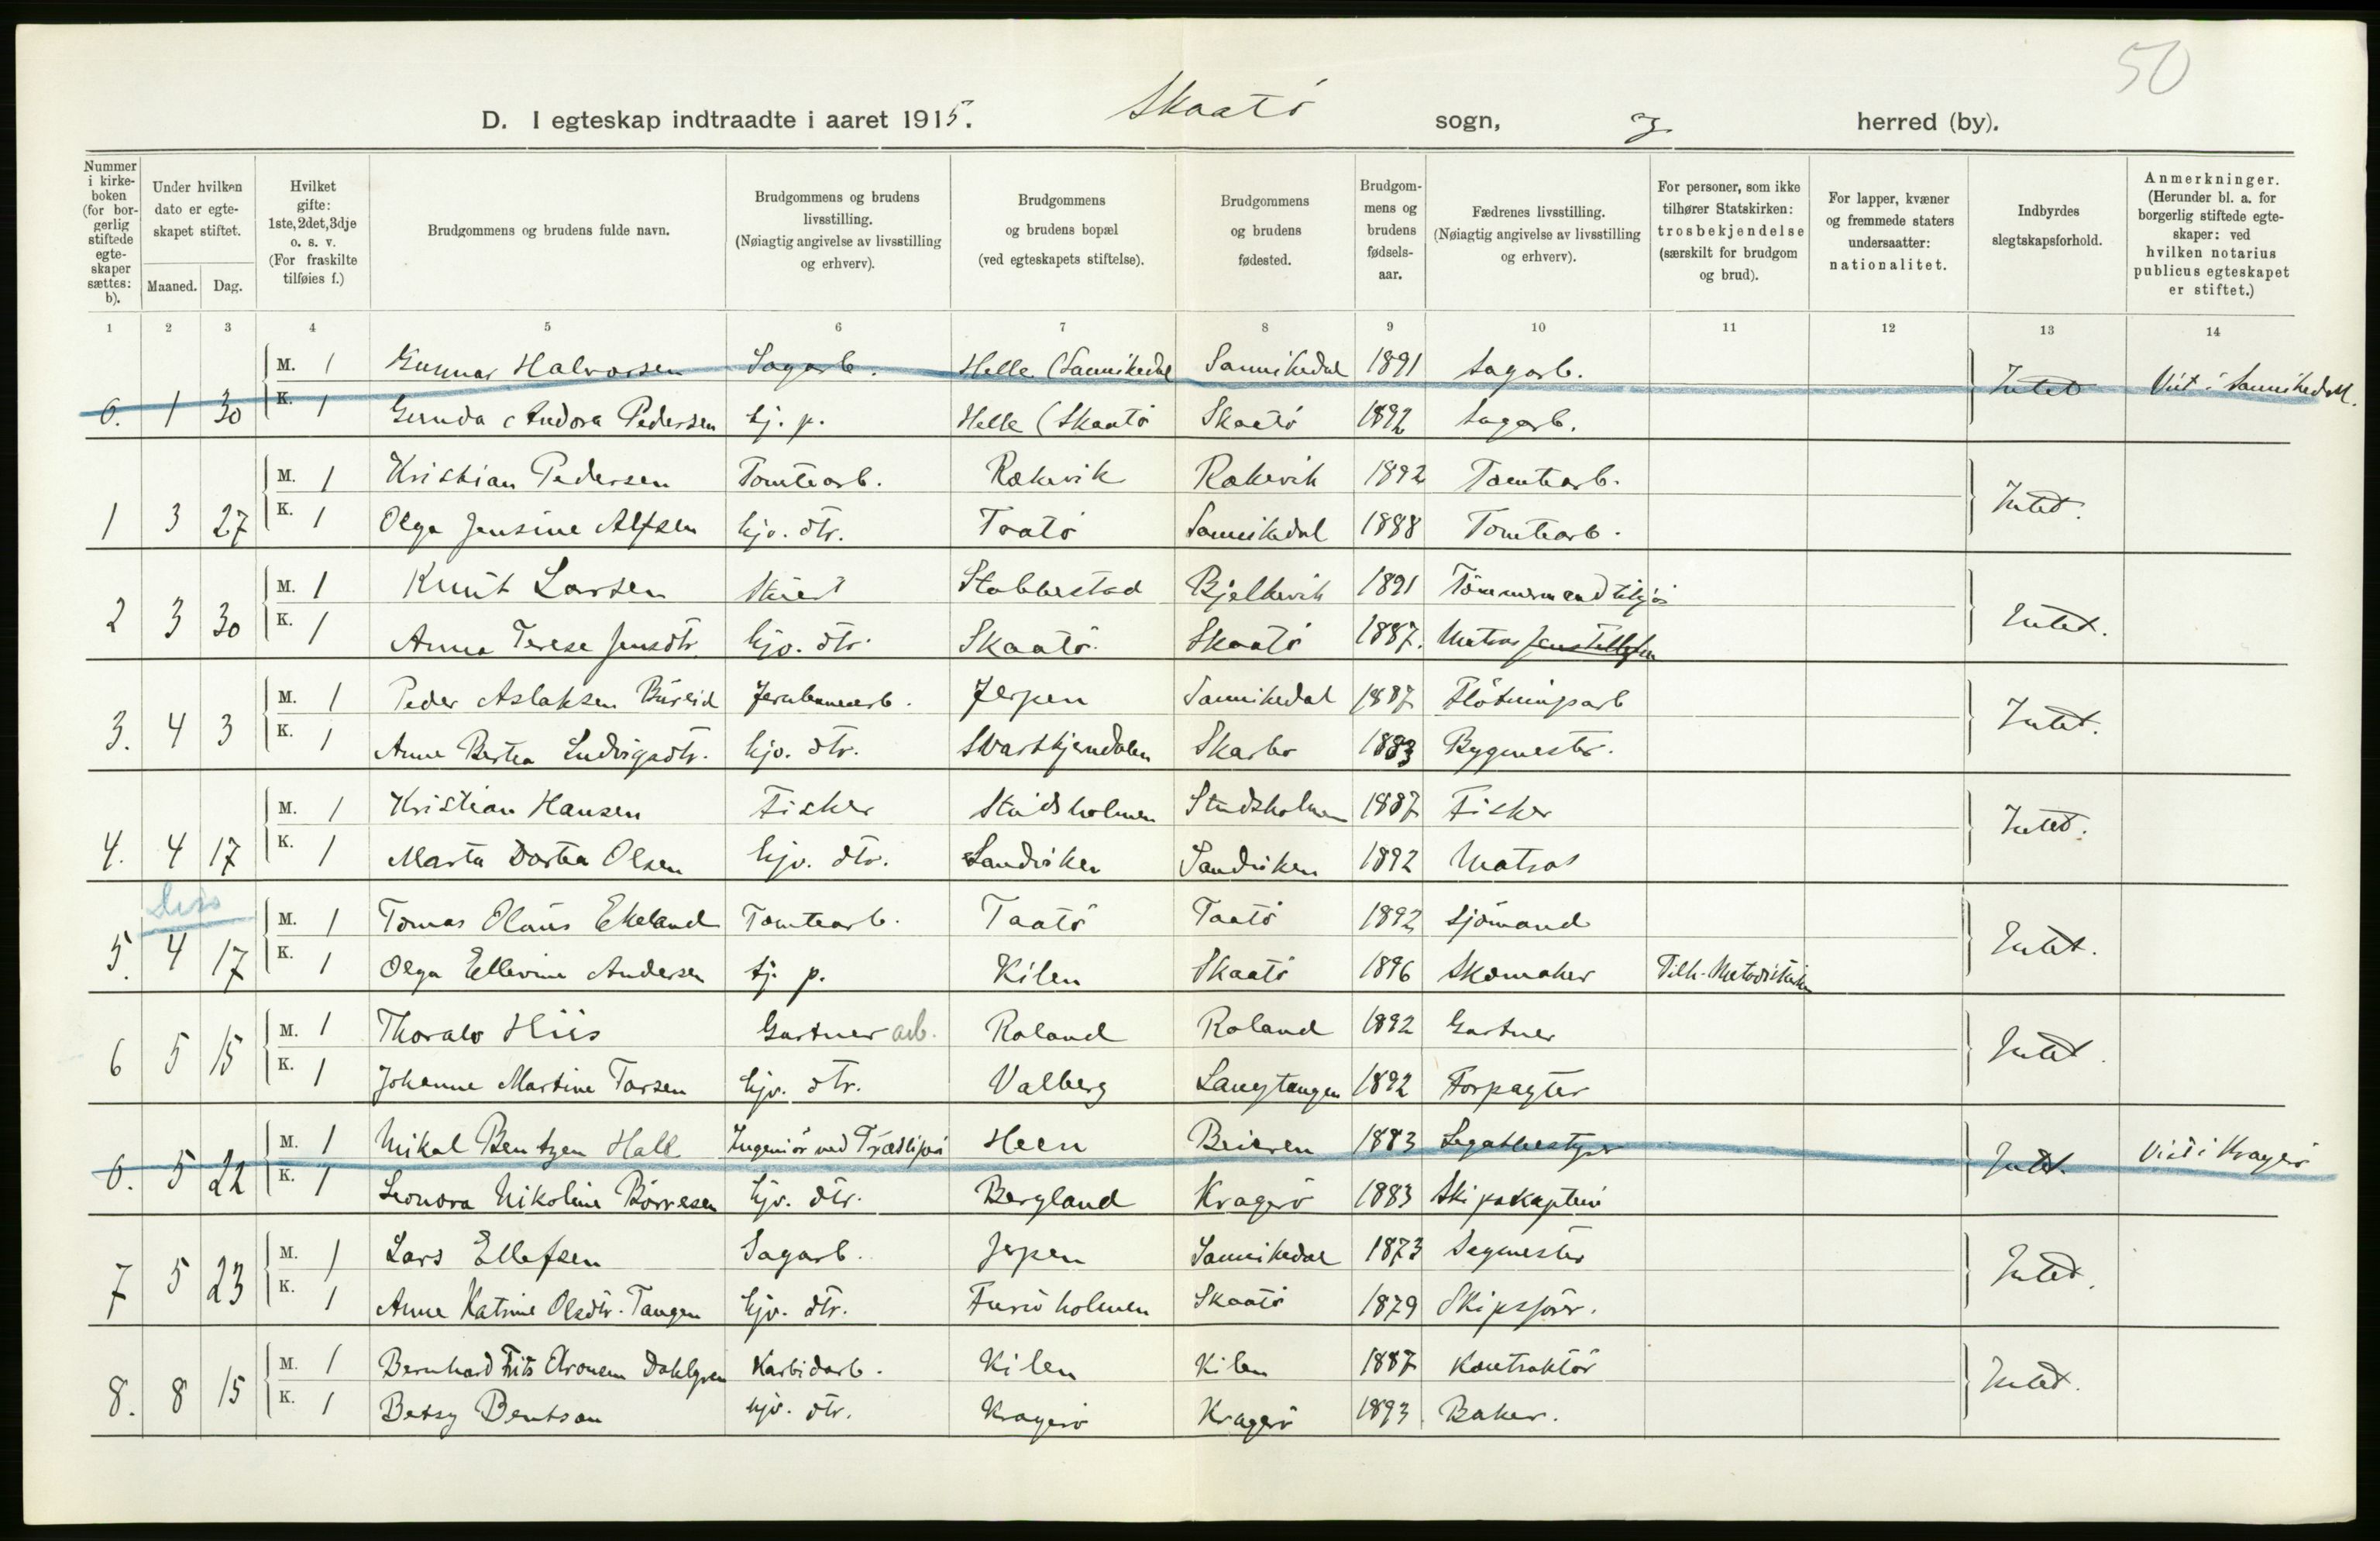 50
D. I egteskap indtraadte i aaret 1915. Skaatö sogn, herred (by).
Nummer i kirkeboken (for borgerlig stiftede egteskaper sættes: b).
Under hvilken dato er egteskapet stiftet.
Maaned. Dag.
Hvilket gifte: 1ste, 2det, 3dje o. s. v. (For fraskilte tilføies f.)
Brudgommens og brudens fulde navn.
Brudgommens og brudens livsstilling. (Nøiagtig angivelse av livsstilling og erhverv).
Brudgommens og brudens bopæl (ved egteskapets stiftelse).
Brudgommens og brudens fødested.
Brudgommens og brudens fødselsaar.
Fædrenes livsstilling. (Nøiagtig angivelse av livsstilling og erhverv).
For personer, som ikke tilhører Statskirken: trosbekjendelse (særskilt for brudgom og brud).
For lapper, kvæner og fremmede staters undersaatter: nationalitet.
Indbyrdes slegtskapsforhold.
Anmerkninger. (Herunder bl. a. for borgerlig stiftede egteskaper: ved hvilken notarius publicus egteskapet er stiftet.)
1 2 3 4 5 6 7 8 9 10 11 12 13 14
M. 1 Gunnar Halvorsen Sagarb. Helle (Sannikedal Sannikedal 1891 Sagarb.
0. 1 30 Intet Viet i Sannikedal.
K. 1 Geruda Andora Pedersen tj. p. Helle (Skaatö Skaatö 1892 Sagarb.
M. 1 Kristian Pedersen Tomtearb. Rækevik Rækevik 1892 Tomtearb.
1 3 27 Intet.
K. 1 Olga Jensine Alfsen hjv. dtr. Taatö Sannikedal 1888 Tomtearb.
M. 1 Knut Larsen Stuert Stabbestad Bjelkevik 1891 Tömmermand tilsjös
2 3 30 Intet.
K. 1 Anna Terese Jensdtr. hjv. dtr. Skaatö. Skaatö 1887. Matros
M. 1 Peder Aslaksen Bureid Jernbanearb. Jerpen Sannikedal 1887 Flötningsarb
3. 4 3 Intet.
K. 1 Anne Bertea Ludvigsdtr. hjv. dtr. Svartkjendalen 1883 Bygmester.
M. 1 Kristian Hansen Fisker Studsholmen Studsholmen 1887 Fisker
4. 4 17 Intet.
K. 1 Marta Dortea Olsen hjv. dtr. Sandviken Sandviken 1892 Matros
Diss
M. 1 Tomas Olaus Ekeland Tomtearb. Taatö Taatö 1892 Sjömand
5. 4 17 Intet.
K. 1 Olga Ellevine Andersen tj. p. Kilen Skaatö 1896 Skomaker Tilh. Metodistkirken
M. 1 Thoralv Hiis Gartner arb. Roland Roland 1892 Gartner
6 5 15 Intet.
K. 1 Johanne Martine Tarsen hjv. dtr. Valberg Langtangen 1892 Forpagter
M. 1 Mikal Bentzen Hall Ingeniör ved Træsliperi Heen Beieren 1883 Legatbestyrer
0. 5 22 Intet. Viet i Kragerö
K. 1 Leonora Nikoline Börresen hjv. dtr. Bergland Kragerö 1883 Skipskaptein
M. 1 Lars Ellefsen Sagarb. Jerpen Sannikedal 1873 Sagmester
7 5 23 Intet.
K. 1 Anne Katrine Olsdtr. Tangen hjv. dtr. Furuholmen Skaatö 1879 Skipsförer.
M. 1 Bernhard Frits Aronsen Dahlgren Karbidarb. Kilen Kilen 1887 Kontraktör
8. 8 15 Intet.
K. 1 Betsy Bentson hjv. dtr. Kragerö Kragerö 1893 Baker.